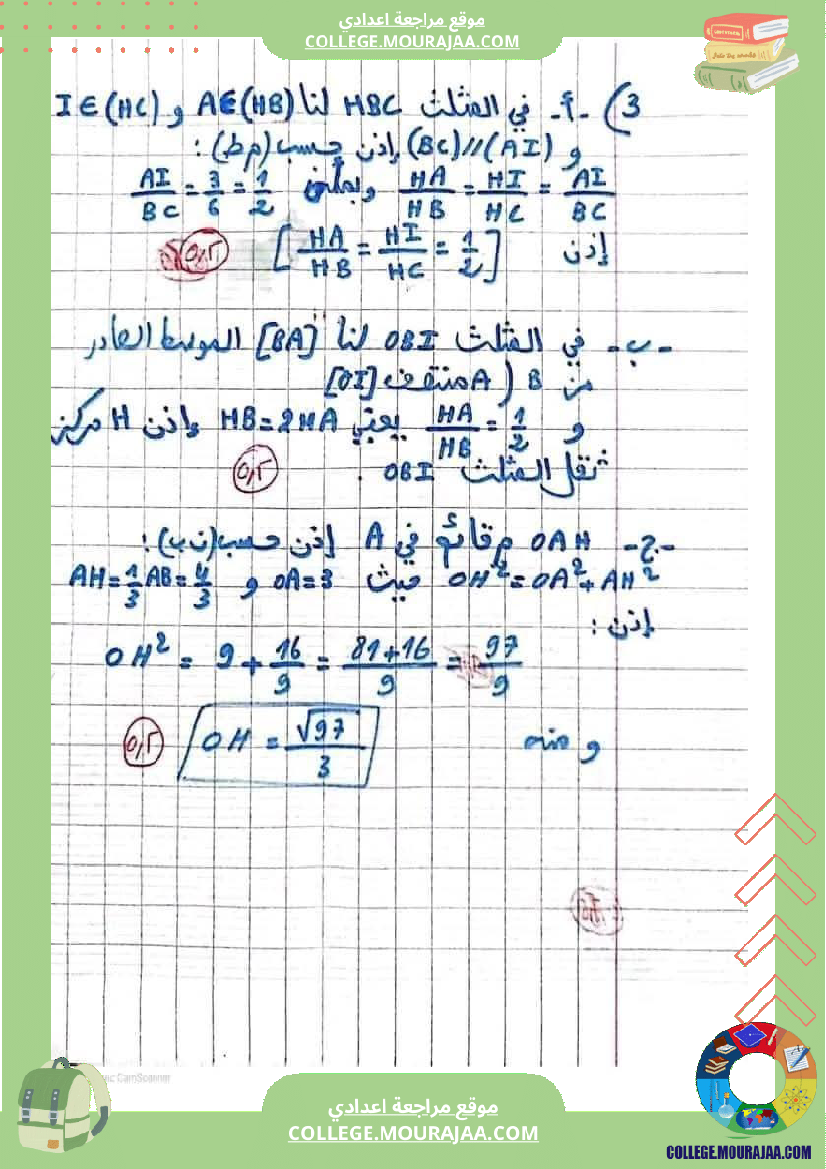 موقع مراجعة اعدادي
COLLEGE.MOURAJAA.COM
3) -أ- في المثلث HBC لنا A∈(HB) و I∈(HC)
و (BC)//(AI) إذن حسب (م ط) :
HA/HB = HI/HC = AI/BC وبما أن AI/BC = 3/6 = 1/2
إذن [HA/HB = HI/HC = 1/2] 0,5
-ب- في المثلث OBI لنا [BA] الموسط الصادر
من B ( A منتصف [OI]
و HA/HB = 1/2 يعني HB=2HA وإذن H مركز
ثقل المثلث OBI . 0,5
-ج- OAH م قائم في A إذن حسب (ن ب) :
OH²=OA²+AH² حيث OA=3 و AH=1/3 AB=4/3
إذن :
OH² = 9 + 16/9 = 81+16/9 = 97/9
ومنه OH = √97/3 0,5
CamScanner
موقع مراجعة اعدادي
COLLEGE.MOURAJAA.COM
COLLEGE.MOURAJAA.COM